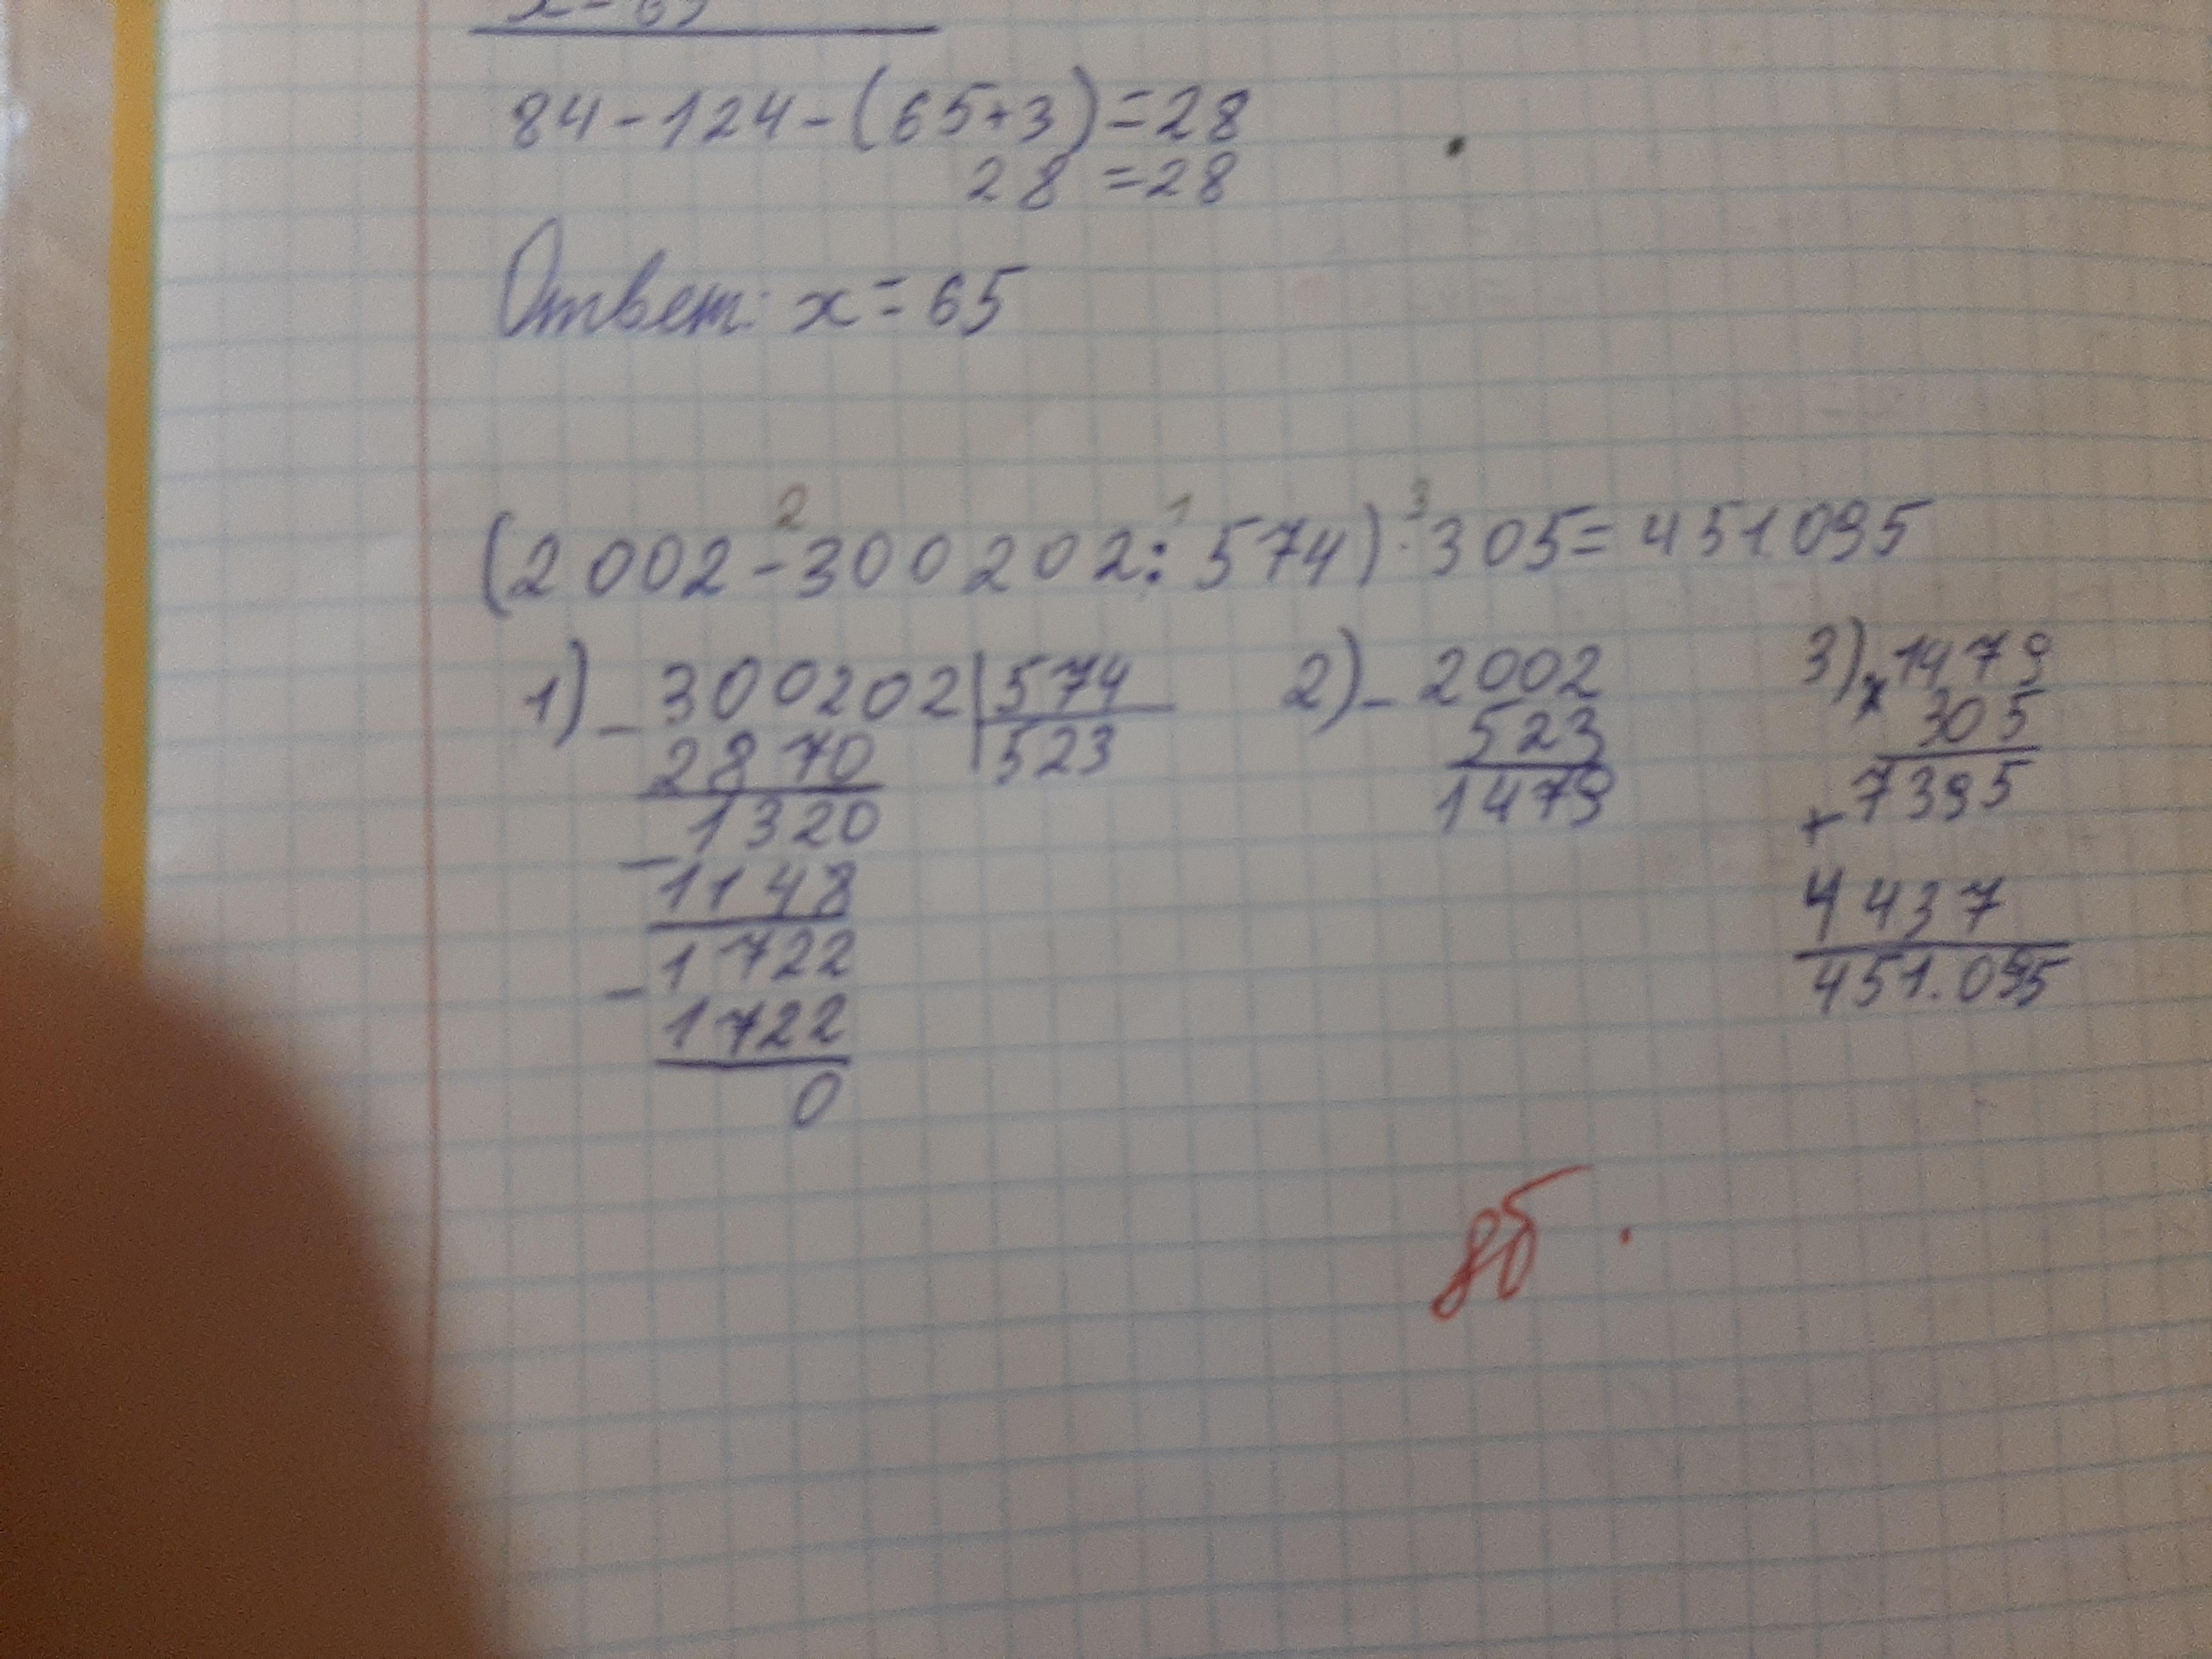 x=65
84-124-(65+3)=28
28=28
Ответ: x=65
2 1 3
(2002-300202:574)·305=451.095
1) - 300202 | 574 2) - 2002 3) x 1479
2870 | 523 523 305
1320 1479 + 7395
- 1148 4437
- 1722 451.095
1722
0
8б.